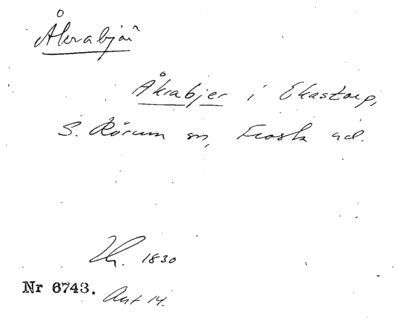 Åkrabjär
Åkrabjer i Ekastorp,
S. Rörum sn, Frosta hd.
1830
Nr 6743. Avt 14.